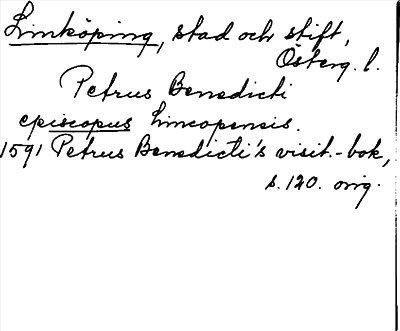 Linköping, stad och stift,
Österg. l.
Petrus Benedicti
episcopus Lincopensis.
1591 Petrus Benedicti's visit.-bok,
s. 120. orig.